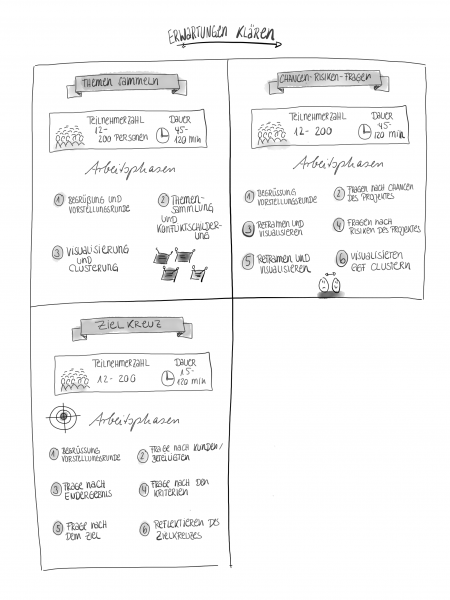 ERWARTUNGEN KLÄREN
THEMEN SAMMELN
TEILNEHMERZAHL
12-
200 PERSONEN
DAUER
45-
120 min
Arbeitsphasen
1 BEGRÜSSUNG UND
VORSTELLUNGSRUNDE
2 THEMEN-
SAMMLUNG
UND
KONFLIKTSCHILDER-
UNG
3 VISUALISIERUNG
UND
CLUSTERUNG
CHANCEN-RISIKEN-FRAGEN
TEILNEHMERZAHL
12- 200
DAUER
45-
120 min
Arbeitsphasen
1 BEGRÜSSUNG
VORSTELLUNGSRUNDE
2 FRAGEN NACH CHANCEN
DES PROJEKTES
3 REFRAMEN UND
VISUALISIEREN
4 FRAGEN NACH
RISIKEN DES PROJEKTES
5 REFRAMEN UND
VISUALISIEREN
6 VISUALISIEREN
GGF CLUSTERN
ZIELKREUZ
TEILNEHMERZAHL
12- 200
DAUER
15-
120 min
Arbeitsphasen
1 BEGRÜSSUNG
VORSTELLUNGSRUNDE
2 FRAGE NACH KUNDEN/
BETEILIGTEN
3 FRAGE NACH
ENDERGEBNIS
4 FRAGE NACH DEN
KRITERIEN
5 FRAGE NACH
DEM ZIEL
6 REFLEKTIEREN DES
ZIELKREUZES